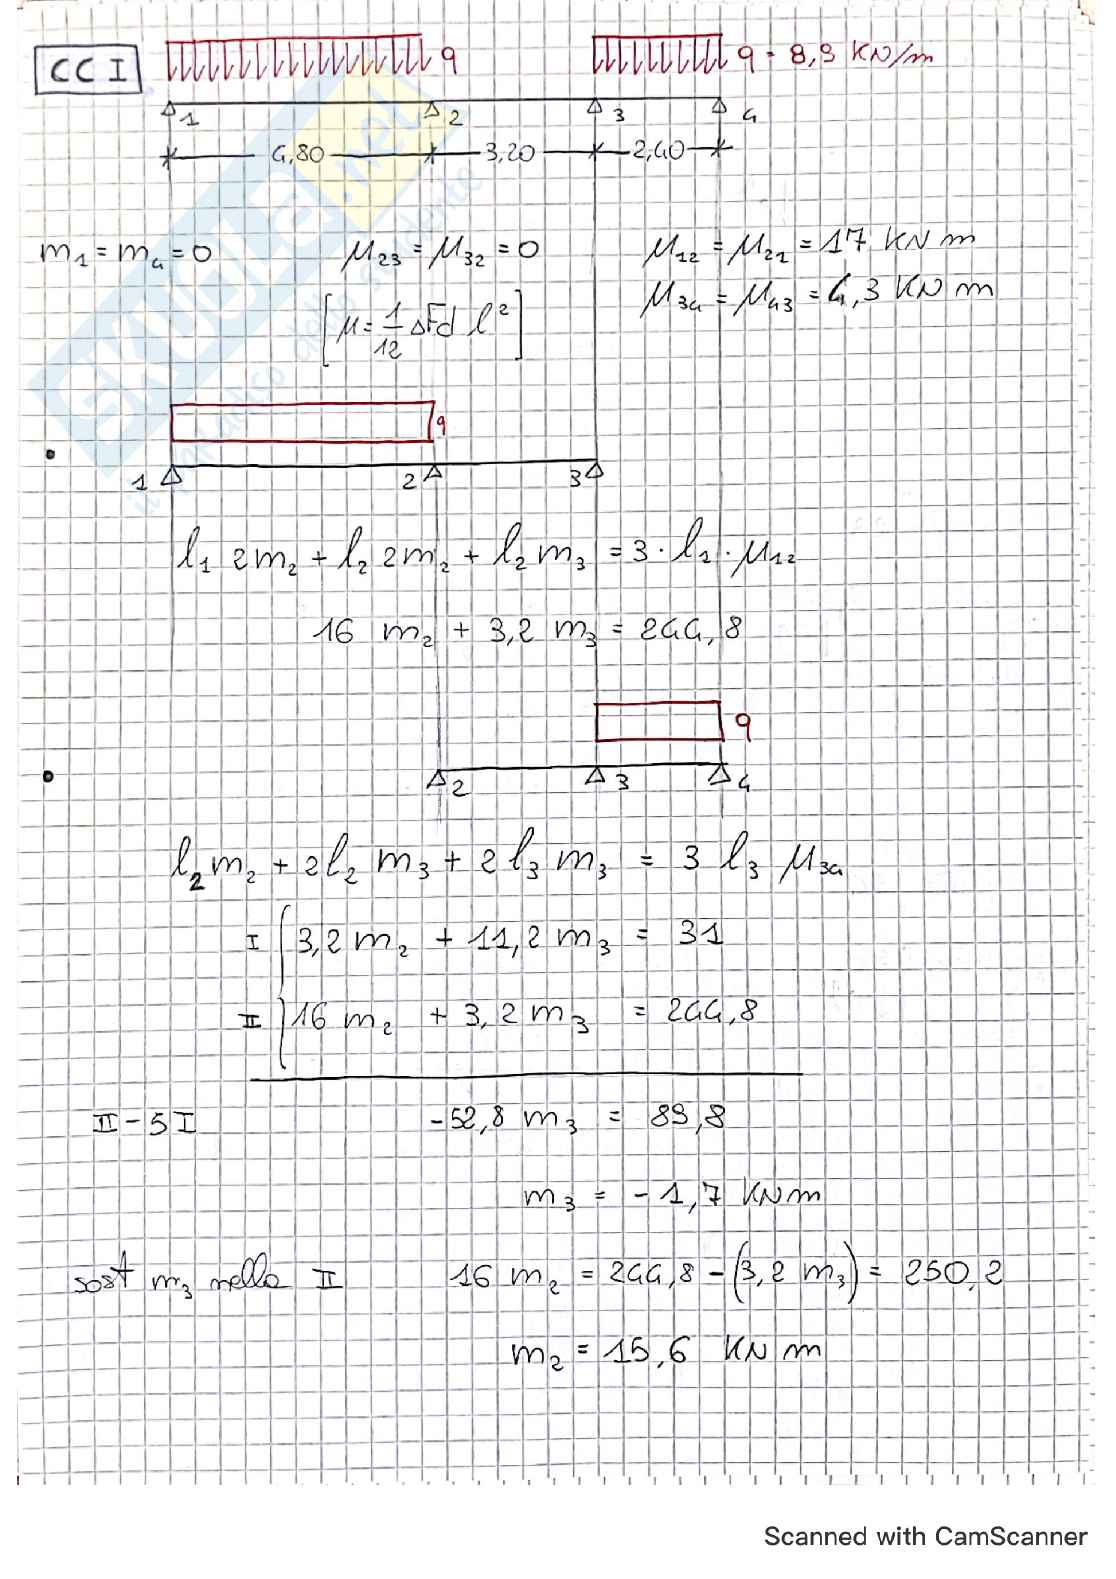 CC I q q = 8,9 KN/m
1 2 3 4
4,80 3,20 2,40
m₁ = m₄ = 0 μ₂₃ = μ₃₂ = 0 μ₁₂ = μ₂₁ = 17 KN m
μ₃₄ = μ₄₃ = 4,3 KN m
[μ = 1/12 ΔFd l²]
q
1 2 3
l₁ 2m₂ + l₂ 2m₂ + l₂ m₃ = 3 · l₁ · μ₁₂
16 m₂ + 3,2 m₃ = 244,8
q
2 3 4
l₂ m₂ + 2l₂ m₃ + 2 l₃ m₃ = 3 l₃ μ₃₄
I { 3,2 m₂ + 11,2 m₃ = 31
II { 16 m₂ + 3,2 m₃ = 244,8
II - 5 I -52,8 m₃ = 89,8
m₃ = - 1,7 KN m
sost m₃ nella II 16 m₂ = 244,8 - (3,2 m₃) = 250,2
m₂ = 15,6 KN m
SKUOLA.net
il paradiso dello studente
Scanned with CamScanner